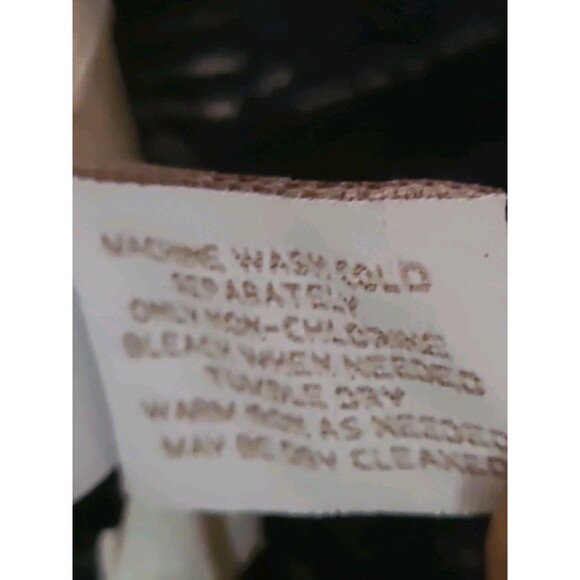 MACHINE WASH COLD
SEPARATELY
ONLY NON-CHLORINE
BLEACH WHEN NEEDED
TUMBLE DRY
WARM IRON AS NEEDED
MAY BE DRY CLEANED